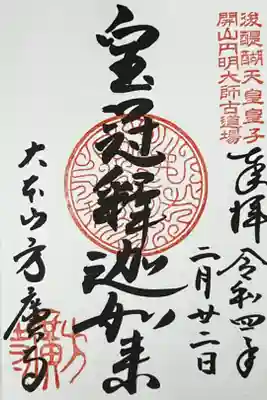 後醍醐天皇皇子
開山円明大師古道場
奉拝 令和四年
二月廿二日
宝冠釋迦如来
大本山方廣寺